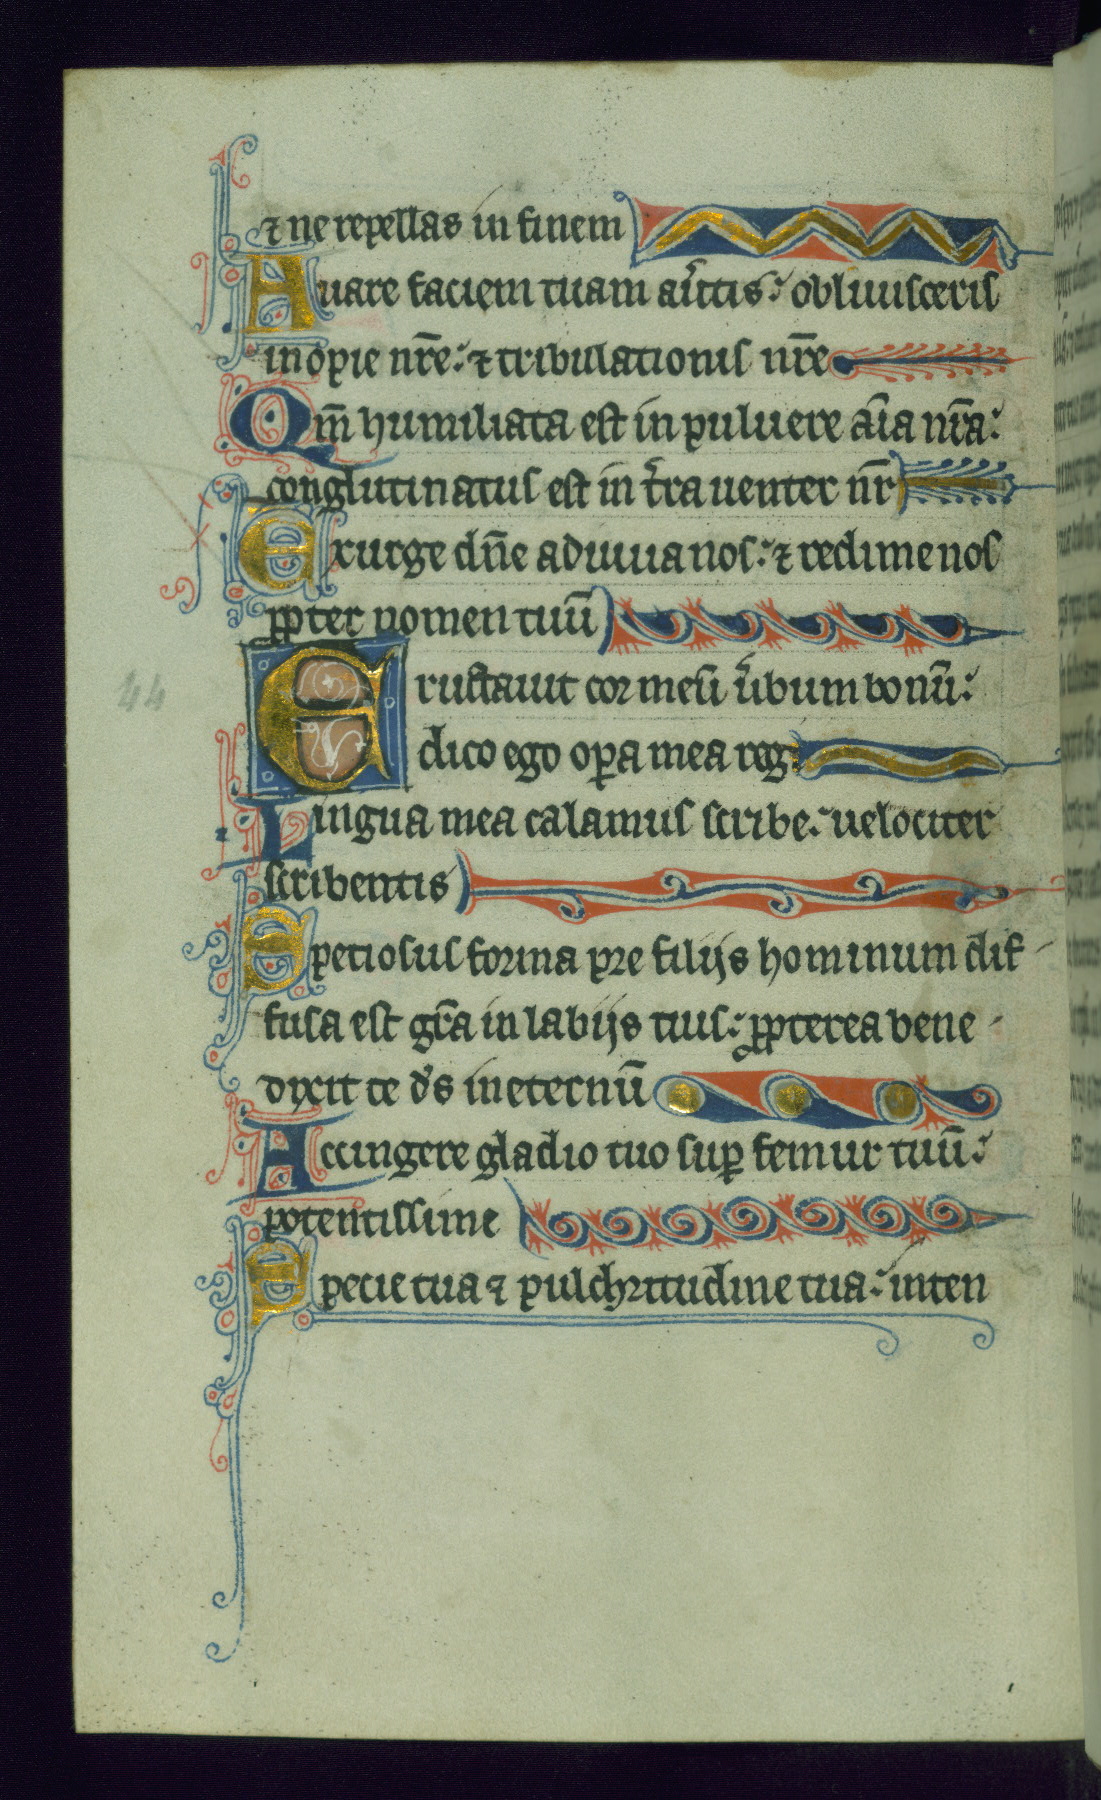 ⁊ ne repellas in finem
Auare faciem tuam au̾tis: obliuisceris
inopie nr̄e: ⁊ tribulationis nr̄e
Qm̄ humiliata est in puluere aīa nr̄a:
conglutinatus est in t̾ra uenter nr̄
Exurge dn̄e adiuua nos: ⁊ redime nos
ꝓpter nomen tuū
Eructauit cor meū u̾bum bonū:
44
dico ego oꝑa mea reg̾
Lingua mea calamus scribe: uelociter
scribentis
Speciosus forma pre filijs hominum dif
fusa est gr̄a in labijs tuis: ꝓpterea bene
dixit te ds̄ in eternū
Accingere gladio tuo suꝑ femur tuū:
potentissime
Specie tua ⁊ pulchritudine tua: inten